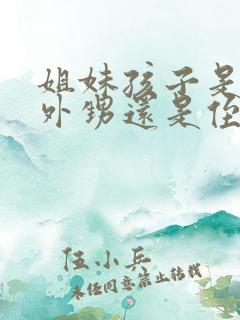 姐妹孩子是
外甥還是侄
伍小兵
未任同意禁止转载